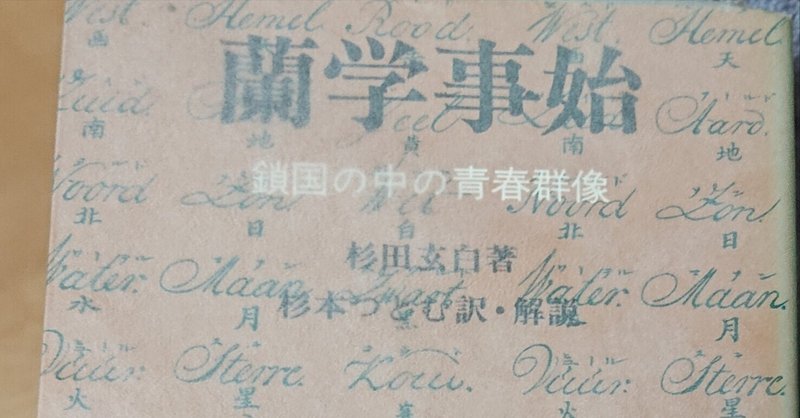 West. Hemel. Rood. West. Hemel.
西 天
蘭学事始
Zuid. Aard.
南 地 黄 南 地
鎖国の中の青春群像
Noord Zon. Wit Noord Zon.
北 日 白 北 日
杉田玄白著
Water. Maan. Water. Maan.
杉本つとむ訳・解説
水 月 月
Vuur. Sterre. Vuur. Sterre.
火 星 火 星